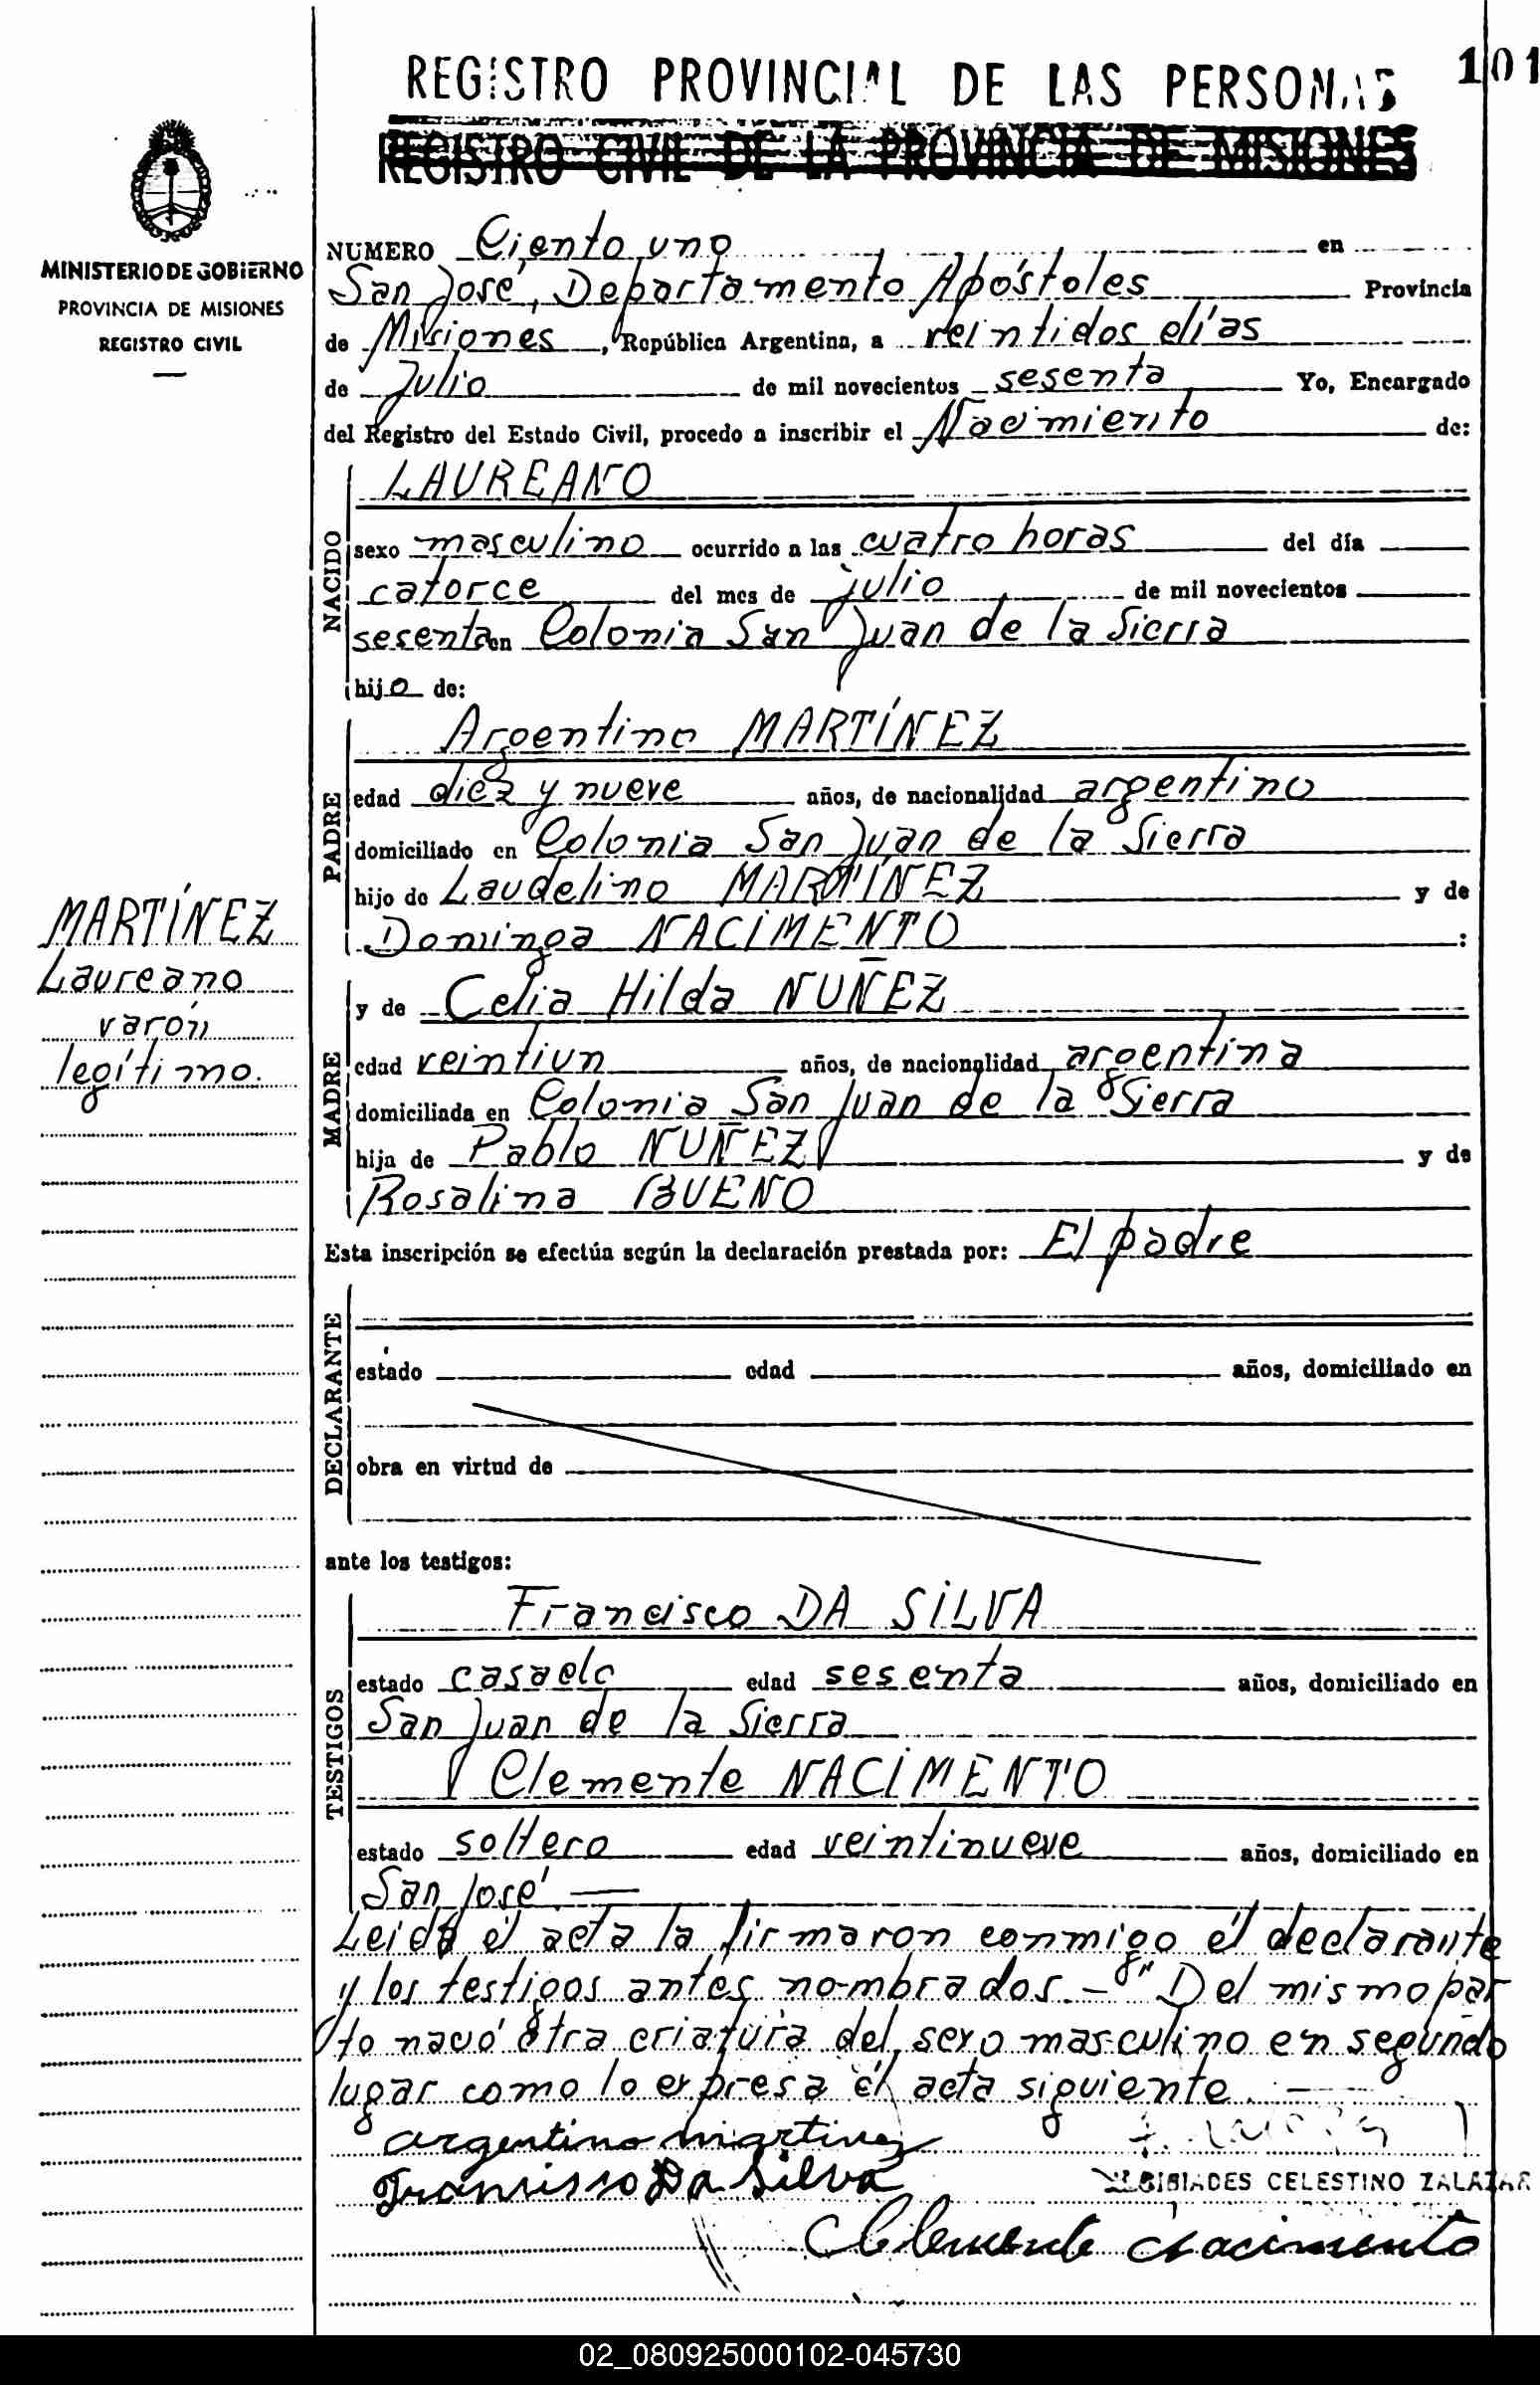 101
REGISTRO PROVINCIAL DE LAS PERSONAS
REGISTRO CIVIL DE LA PROVINCIA DE MISIONES
MINISTERIO DE GOBIERNO
PROVINCIA DE MISIONES
REGISTRO CIVIL
NUMERO Ciento uno en
San José, Departamento Apóstoles Provincia
de Misiones, República Argentina, a veintidos días
de Julio de mil novecientos sesenta Yo, Encargado
del Registro del Estado Civil, procedo a inscribir el Nacimiento de:
NACIDO
LAUREANO
sexo masculino ocurrido a las cuatro horas del día
catorce del mes de julio de mil novecientos
sesenta en Colonia San Juan de la Sierra
hijo de:
PADRE
Argentino MARTÍNEZ
edad diez y nueve años, de nacionalidad argentino
domiciliado en Colonia San Juan de la Sierra
hijo de Laudelino MARTÍNEZ y de
Dominga NACIMENTO :
MARTÍNEZ
Laureano
varón
legítimo.
MADRE
y de Celia Hilda NUÑEZ
edad veintiun años, de nacionalidad argentina
domiciliada en Colonia San Juan de la Sierra
hija de Pablo NUÑEZ y de
Rosalina BUENO
Esta inscripción se efectúa según la declaración prestada por: El padre
DECLARANTE
estado edad años, domiciliado en
obra en virtud de
ante los testigos:
TESTIGOS
Francisco DA SILVA
estado casado edad sesenta años, domiciliado en
San Juan de la Sierra
Clemente NACIMENTO
estado soltero edad veintinueve años, domiciliado en
San José —
Leida el acta la firmaron conmigo el declarante
y los testigos antes nombrados.- " Del mismo par
to nació otra criatura del sexo masculino en segundo
lugar como lo expresa el acta siguiente. —
argentino martinez
Francisco Da Silva
CELESTINO ZALAZAR
Clemente Nacimento
02_080925000102-045730